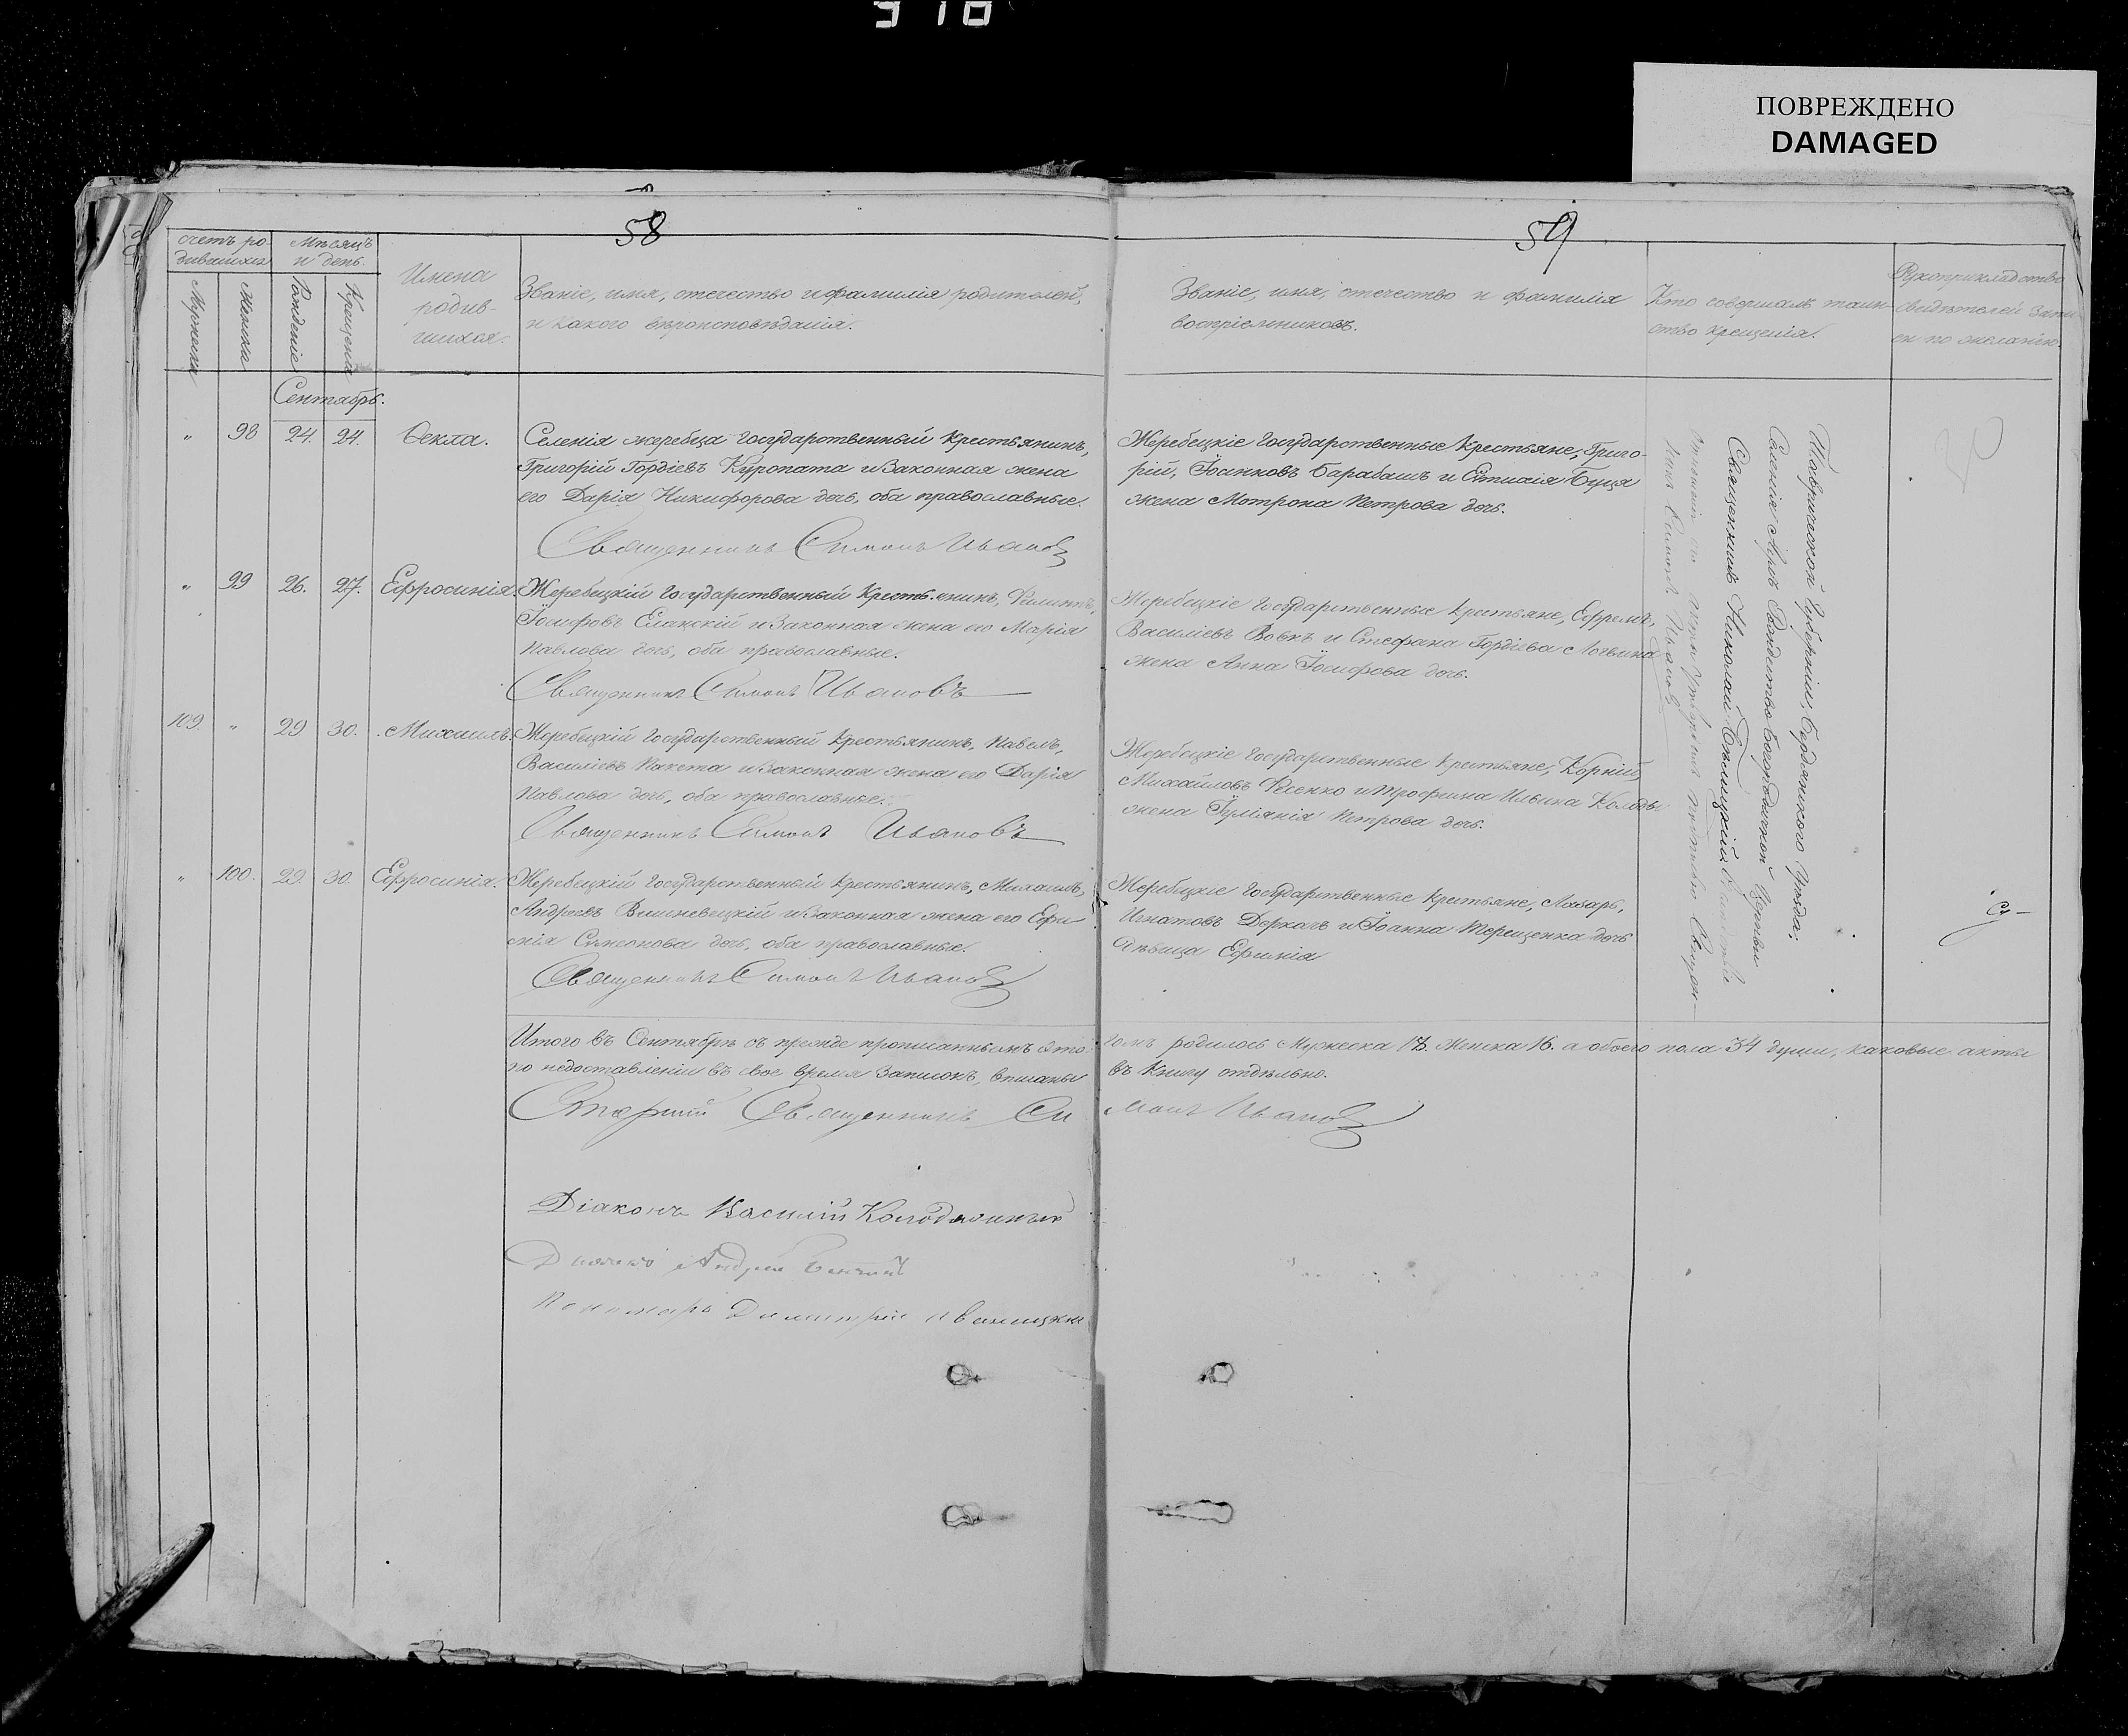 ПОВРЕЖДЕНО
DAMAGED
58
счетъ ро-
дившихся
Мѣсяцъ
и день.
Мужеска
Женска
Рожденіе
Крещенія
Имена
родив-
шихся.
Званіе, имя, отечество и фамилія родителей,
и какого вѣроисповѣданія.
Сентябрь.
„ 98 24. 24. Ѳекла.
Селенія жеребца Государственный крестьянинъ,
Григорій Гордіевъ Куропата и законная жена
его Дарія Никифорова дочь, оба православные.
Священникъ Симонъ Ивановъ
„ 99 26. 27. Ефросинія.
Жеребецкій Государственный Крестьянинъ, Филиппъ,
Іосифовъ Еланскій и законная жена его Марія
Павлова дочь, оба православные.
Священникъ Симонъ Ивановъ
109. „ 29 30. Михаилъ.
Жеребецкій Государственный крестьянинъ, Павелъ,
Василіевъ и законная жена его Дарія
Павлова дочь, оба православные.
Священникъ Симонъ Ивановъ
„ 100. 29. 30. Ефросинія.
Жеребецкій Государственный крестьянинъ, Михаилъ,
Андреевъ Вишневецкій и законная жена его Ефи-
мія Симеонова дочь, оба православные.
Священникъ Симонъ Ивановъ
Итого въ Сентябрѣ съ прежде прописаннымъ
по недоставленіи въ свое время записокъ, вписаны
Старшій Священникъ Си
Діаконъ Василій
Андрей
Пономарь Димитрій
59
Званіе, имя, отечество и фамилія
воспріемниковъ.
Кто совершалъ таин-
ство крещенія.
Рукоприкладство
свидѣтелей записи
по желанію.
Жеребецкіе Государственные крестьяне, Григо-
рій, Барабашъ и Буця
жена Мотрона Петрова дочь.
Жеребецкіе Государственные крестьяне, Ефремъ,
Василіевъ Вовкъ и Стефана Гордіева
жена Анна Іосифова дочь.
Жеребецкіе Государственные крестьяне, Корній,
Михайловъ и Трофима Ильина
жена Іуліанія Петрова дочь.
Жеребецкіе Государственные крестьяне, Лазарь,
Игнатовъ Деркачъ и Іоанна Терещенка дочь
дѣвица Ефимія
Таврической Губерніи, Бердянскаго Уѣзда,
Селенія Рождество Богородичной Церкви
Священникъ Николай Бѣлицкій
Симонъ Ивановъ
родилось Мужеска 18. Женска 16. а обоего пола 34 души, каковые акты
въ книгу отдѣльно.
монъ Ивановъ